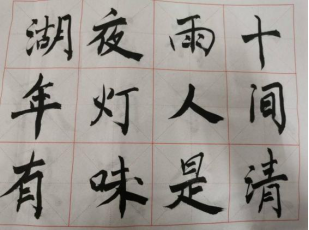 湖夜雨十
年灯人间
有味是清